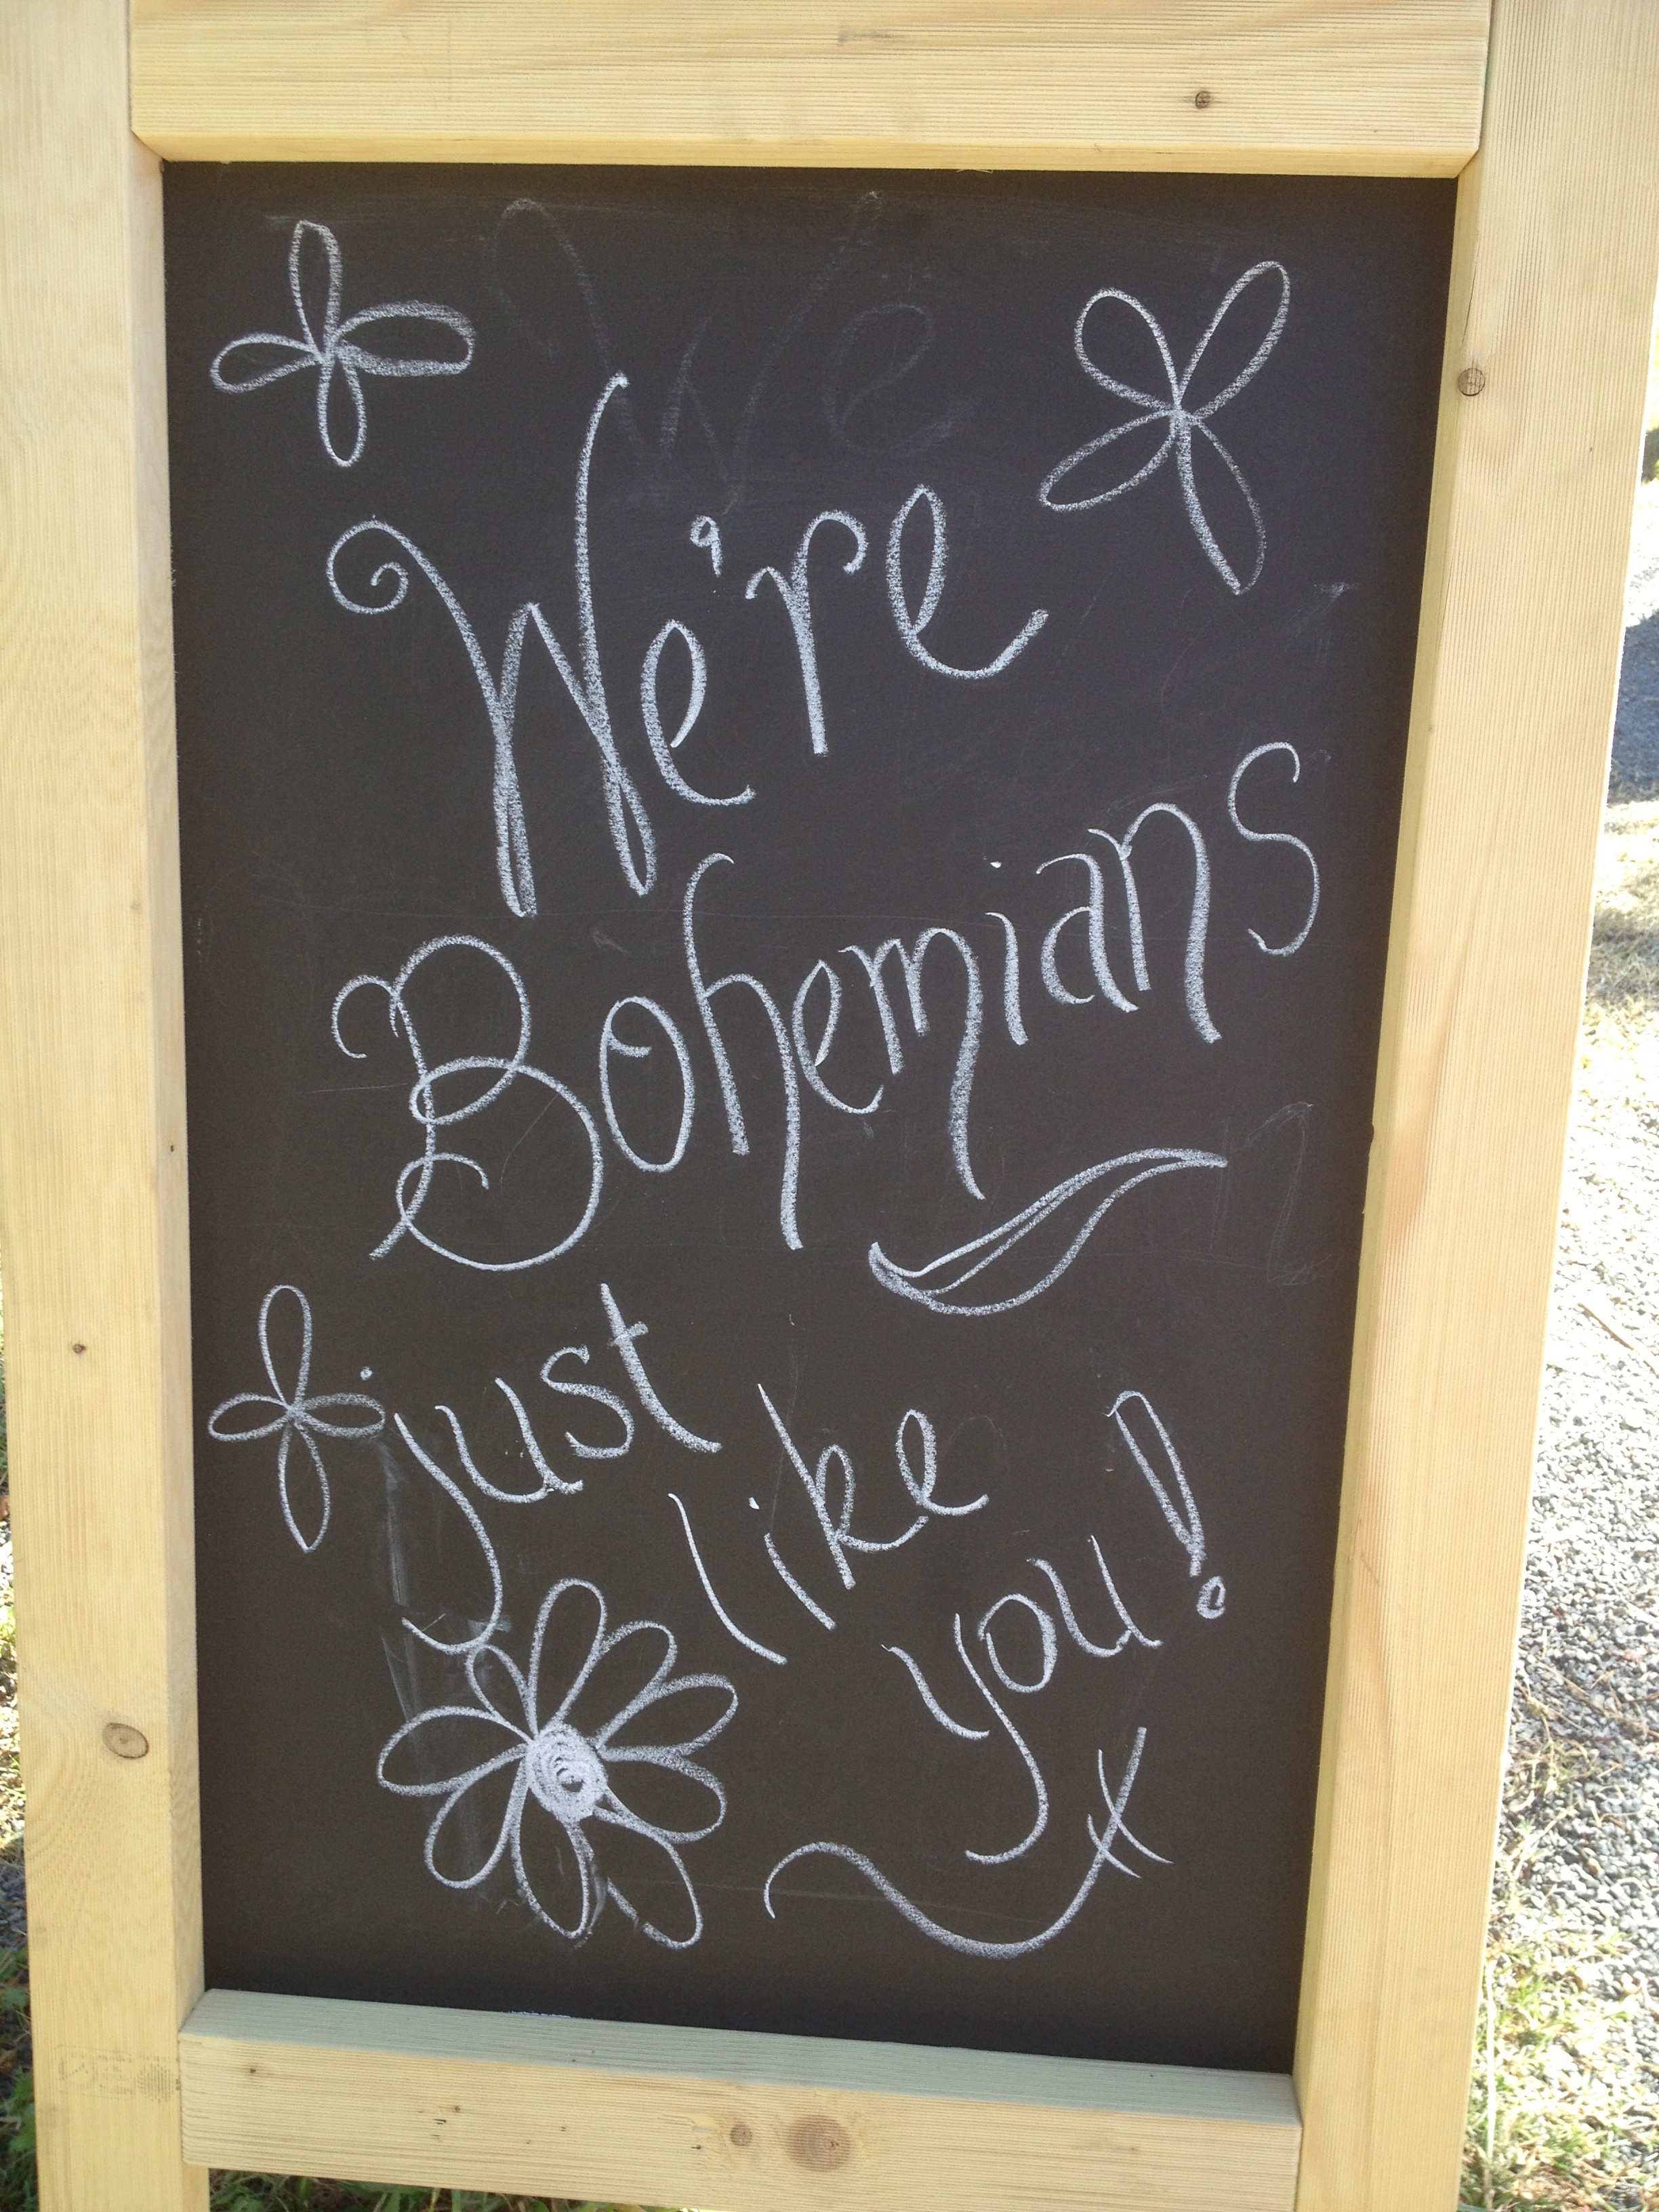 We're
Bohemians
just
like
you!